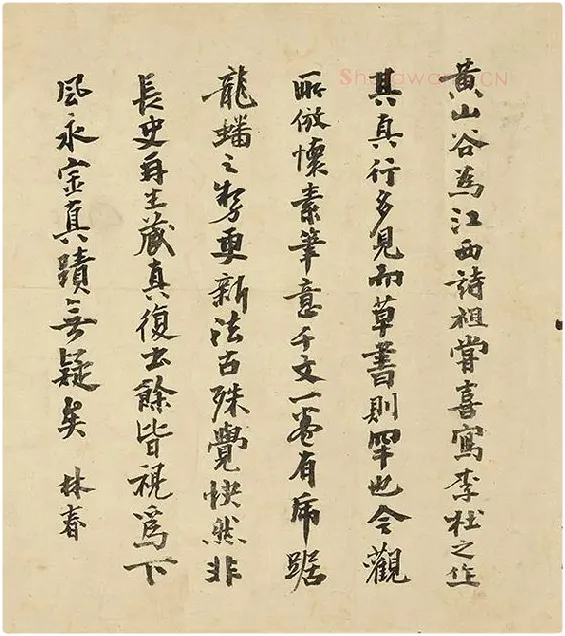 黃山谷為江西詩祖嘗喜寫李杜之作
其真行多見而草書則罕也今觀
所倣懷素筆意千文一卷有席踞
龍蟠之勢更新法古殊覺快然非
長史再生藏真復出餘皆視為下
風永寶真蹟無疑矣 林春